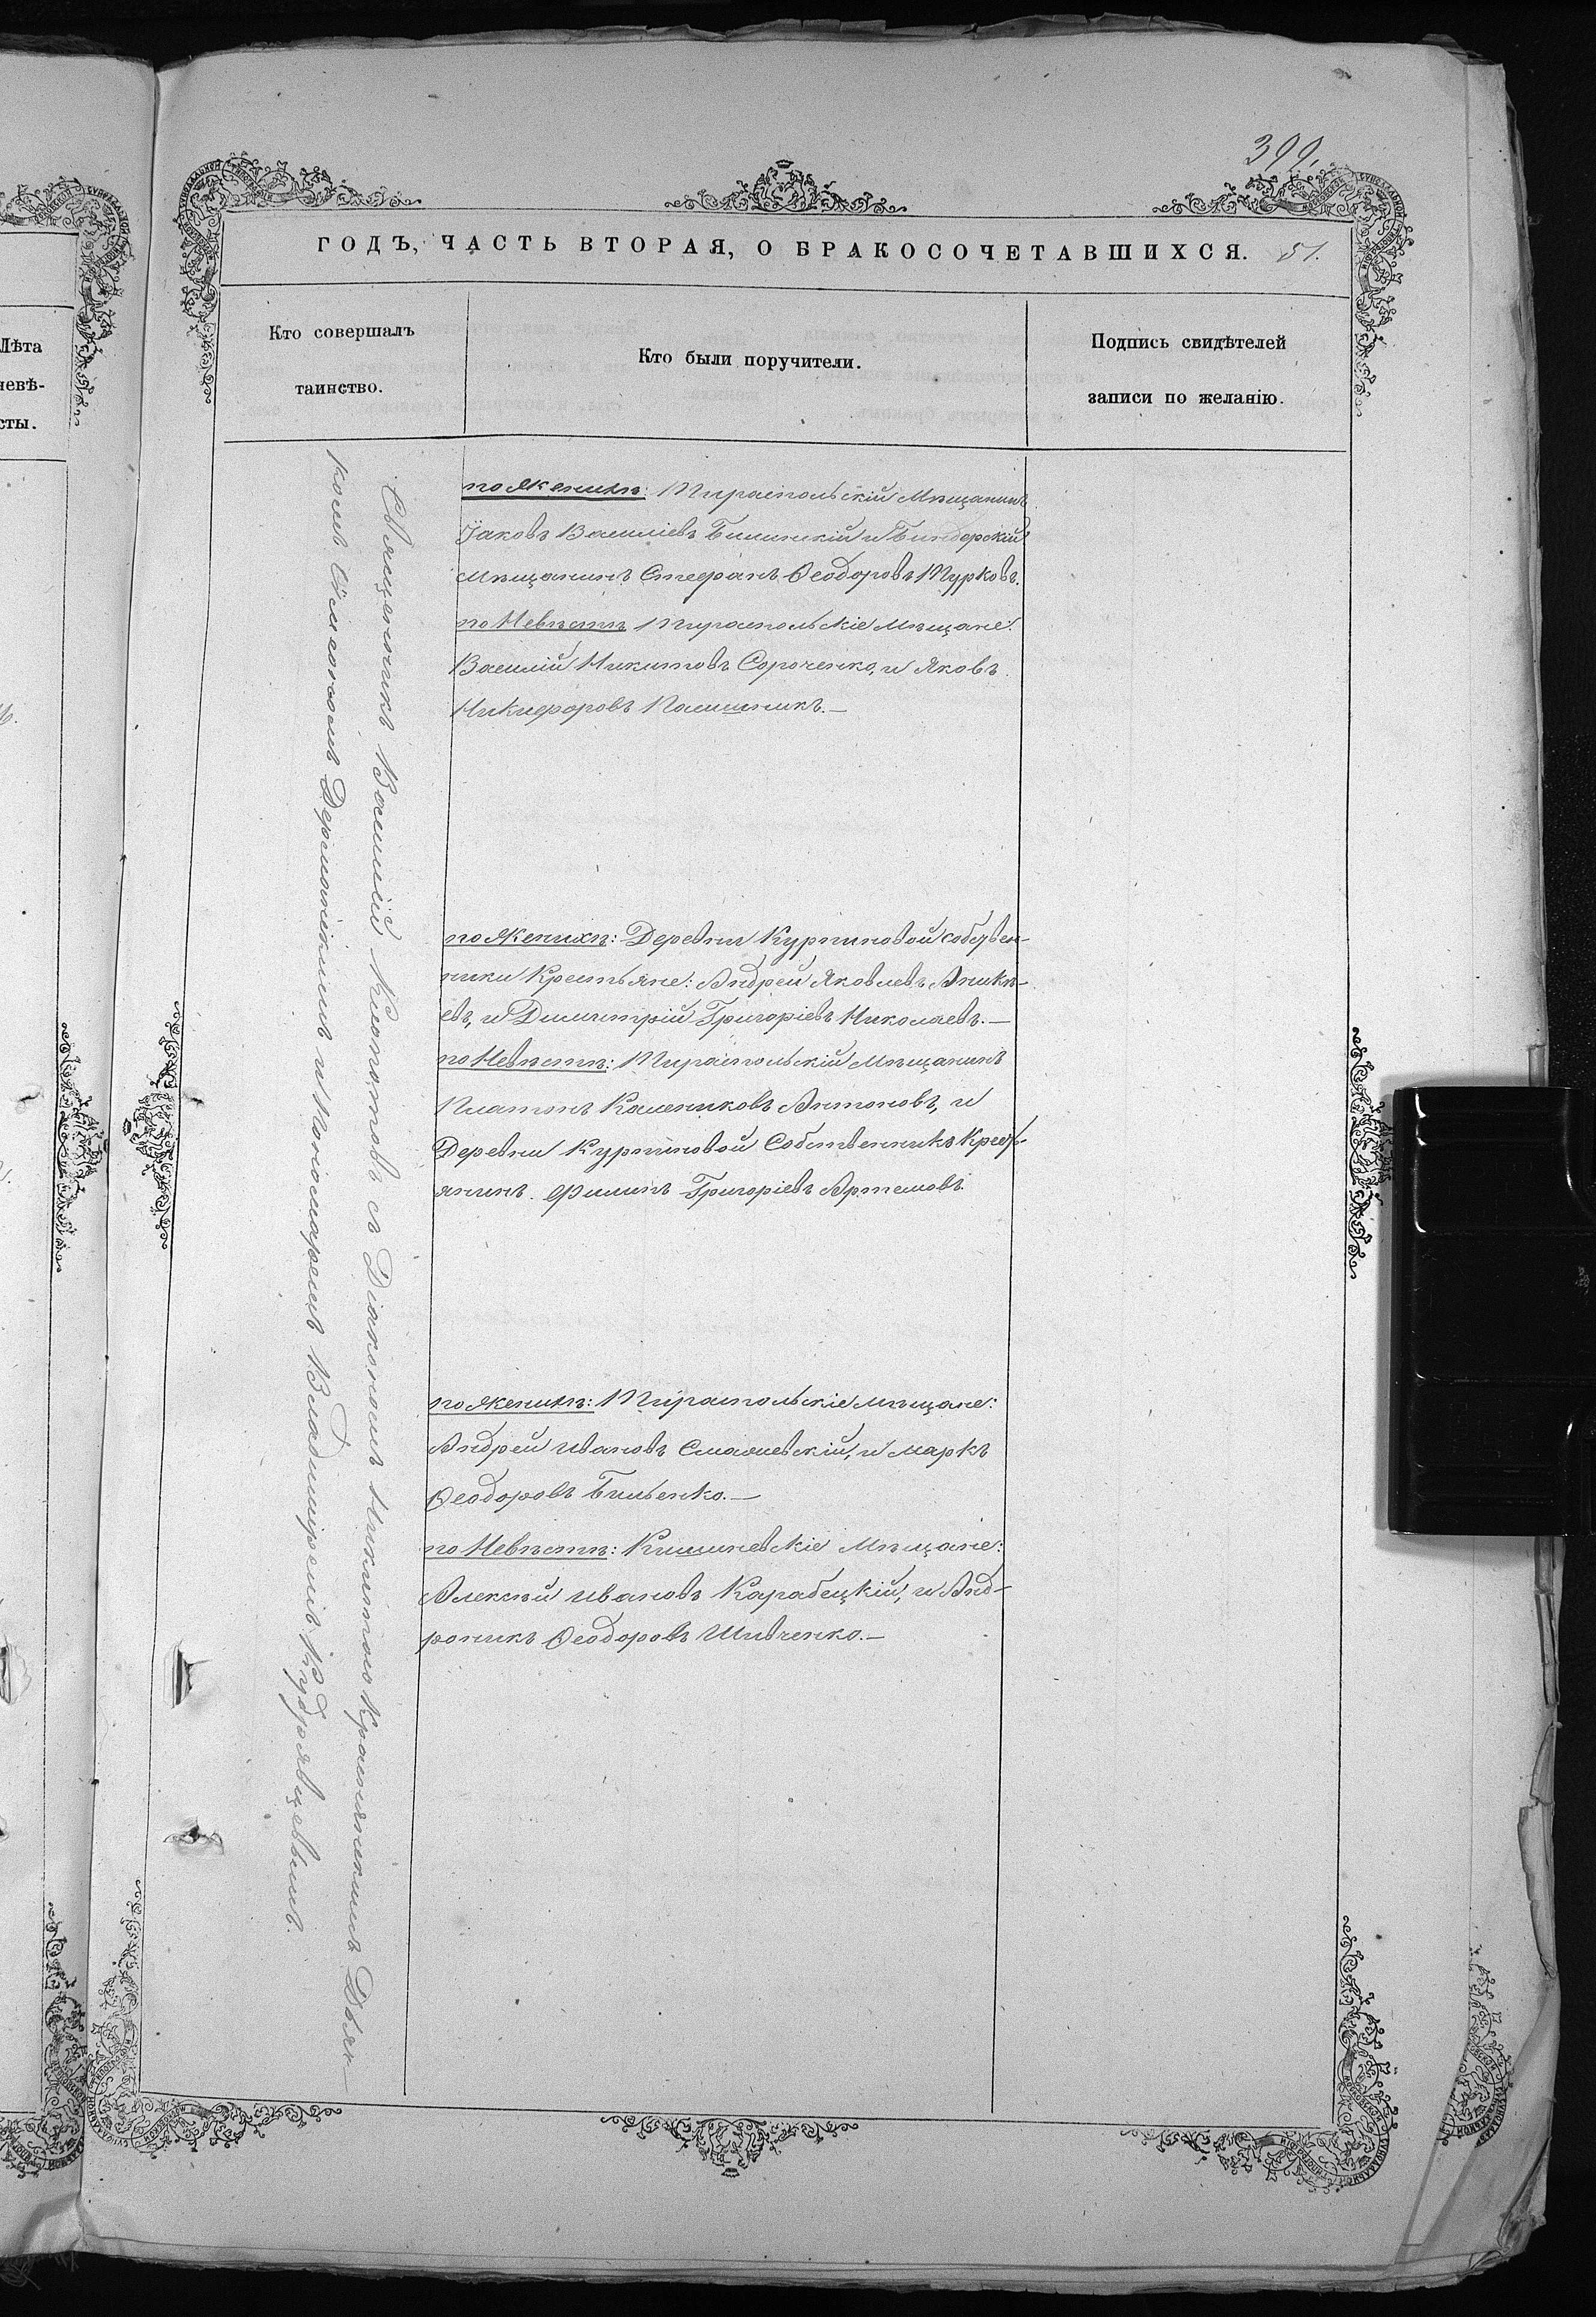 399.
ГОДЪ, ЧАСТЬ ВТОРАЯ, О БРАКОСОЧЕТАВШИХСЯ. 51.
Лѣта
невѣ-
сты.
Кто совершалъ
таинство.
Кто были поручители.
Подпись свидѣтелей
записи по желанію.
Священникъ Василій Діакономъ Никитою Дьяч-
комъ и Пономаремъ Владиміромъ Кудрявцевымъ.
по Женихѣ: Тираспольскій Мѣщанинъ
Іаковъ Василіевъ и Бендерскій
мѣщанинъ Стефанъ Ѳеодоровъ Пурковъ.
по Невѣстѣ Тираспольскіе Мѣщане:
Василій Никитовъ Сороченко, и Яковъ
Никифоровъ
по Женихѣ: Деревни Курпиновой собствен-
ники Крестьяне: Андрей Яковлевъ Аникѣ-
евъ, и Димитрій Григоріевъ Николаевъ.—
по Невѣстѣ: Тираспольскій Мѣщанинъ
Платонъ Калениковъ Антоновъ, и
Деревни Курпиновой Собственникъ Крест-
янинъ. Филипъ Григоріевъ Артемовъ.
по Женихѣ: Тираспольскіе мѣщане:
Андрей Ивановъ и Маркъ
Ѳеодоровъ Бильенко.—
по Невѣстѣ: Кишиневскіе Мѣщане:
Алексѣй Ивановъ Карабецкій, и Анд-
роникъ Ѳеодоровъ Шивченко.—